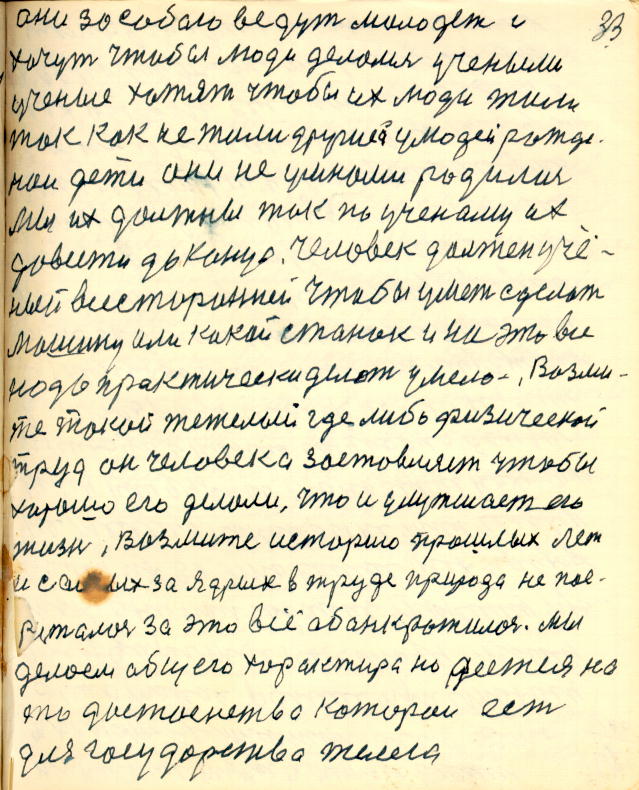 33
они за собою ведут молодеж и
хочут чтобы люди делолия учеными
ученые хотят чтобы их люди жили
так как не жили другие у людей рожде-
наи дети они не умноми родилия
мы их должны так по ученаму их
довести до конца. Человек должен учё-
ный всесторонней чтобы умет сделат
машину или какой станок и на это все
надо практически делат умело-, Возми-
те такой тежелый где либо физической
труд он человека заставляет чтобы
харашо его делали, что и улутшает его
жизн, Возмите историю прошлых лет
и самых за ядрых в труде природа не пос-
за это всё обанкротилоя. мы
делаем общего характира но на
это достоенства которои ест
для государства телега